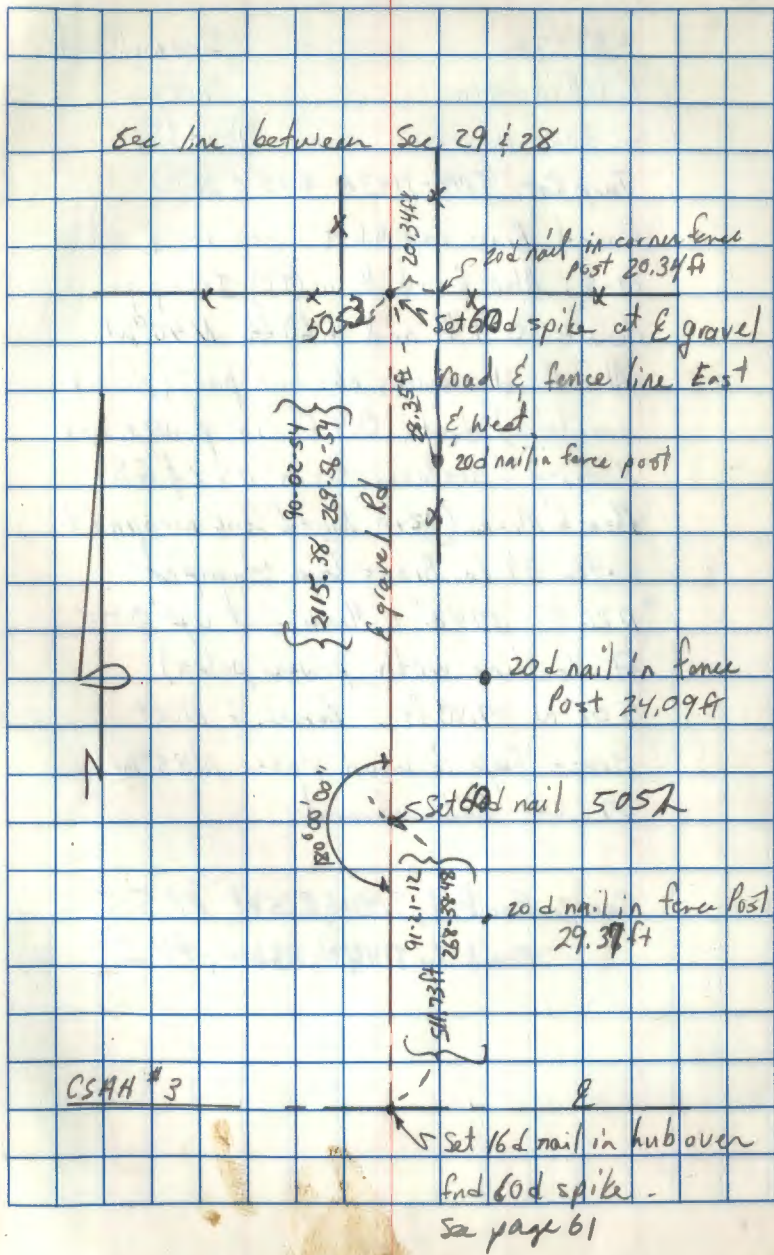 Sec line between Sec 29 & 28
20.34ft
20d nail in corner fence
post 20.34ft
5053
Set 60d spike at ℄ gravel
road & fence line East
& West
28.35ft
20d nail in fence post
90-02-54
269-56-54
2115.38
℄ gravel Rd
20d nail in fence
Post 24.09ft
N
Set 60d nail 5052
180°00'00"
91-21-12
268-38-48
511.73ft
20d nail in fence Post
29.37ft
CSAH #3
℄
Set 16d nail in hub over
fnd 60d spike.
See page 61